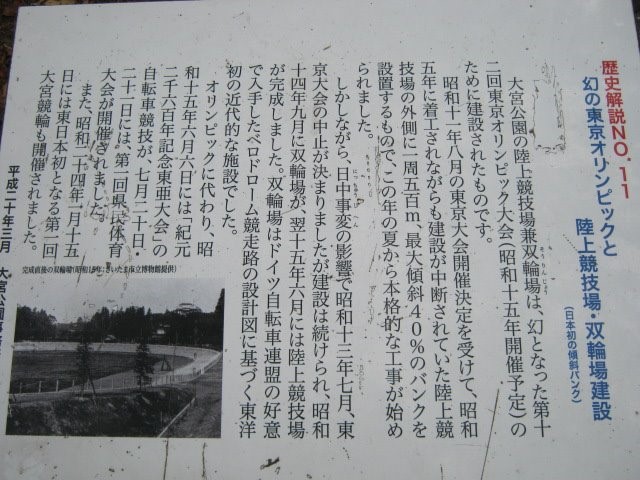 歴史解説NO.11
幻の東京オリンピックと
陸上競技場・双輪場建設
(日本初の傾斜バンク)
大宮公園の陸上競技場兼双輪場は、幻となった第十
二回東京オリンピック大会(昭和十五年開催予定)の
ために建設されたものです。
昭和十一年八月の東京大会開催決定を受けて、昭和
五年に着工されながらも建設が中断されていた陸上競
技場の外側に一周五百m、最大傾斜40%のバンクを
設置するもので、この年の夏から本格的な工事が始め
られました。
しかしながら、日中事変の影響で昭和十三年七月、東
京大会の中止が決まりましたが建設は続けられ、昭和
十四年九月に双輪場が、翌十五年六月には陸上競技場
が完成しました。双輪場はドイツ自転車連盟の好意
で入手したベロドローム競走路の設計図に基づく東洋
初の近代的な施設でした。
オリンピックに代わり、昭
和十五年六月六日には「紀元
二千六百年記念東亜大会」の
自転車競技が、七月二十日・
二十一日には、第一回県民体育
大会が開催されました。
また、昭和二十四年一月十五
日には東日本初となる第一回
大宮競輪も開催されました。
平成二十年三月 大宮公園事務
完成直後の双輪場(昭和15年さいたま市立博物館提供)